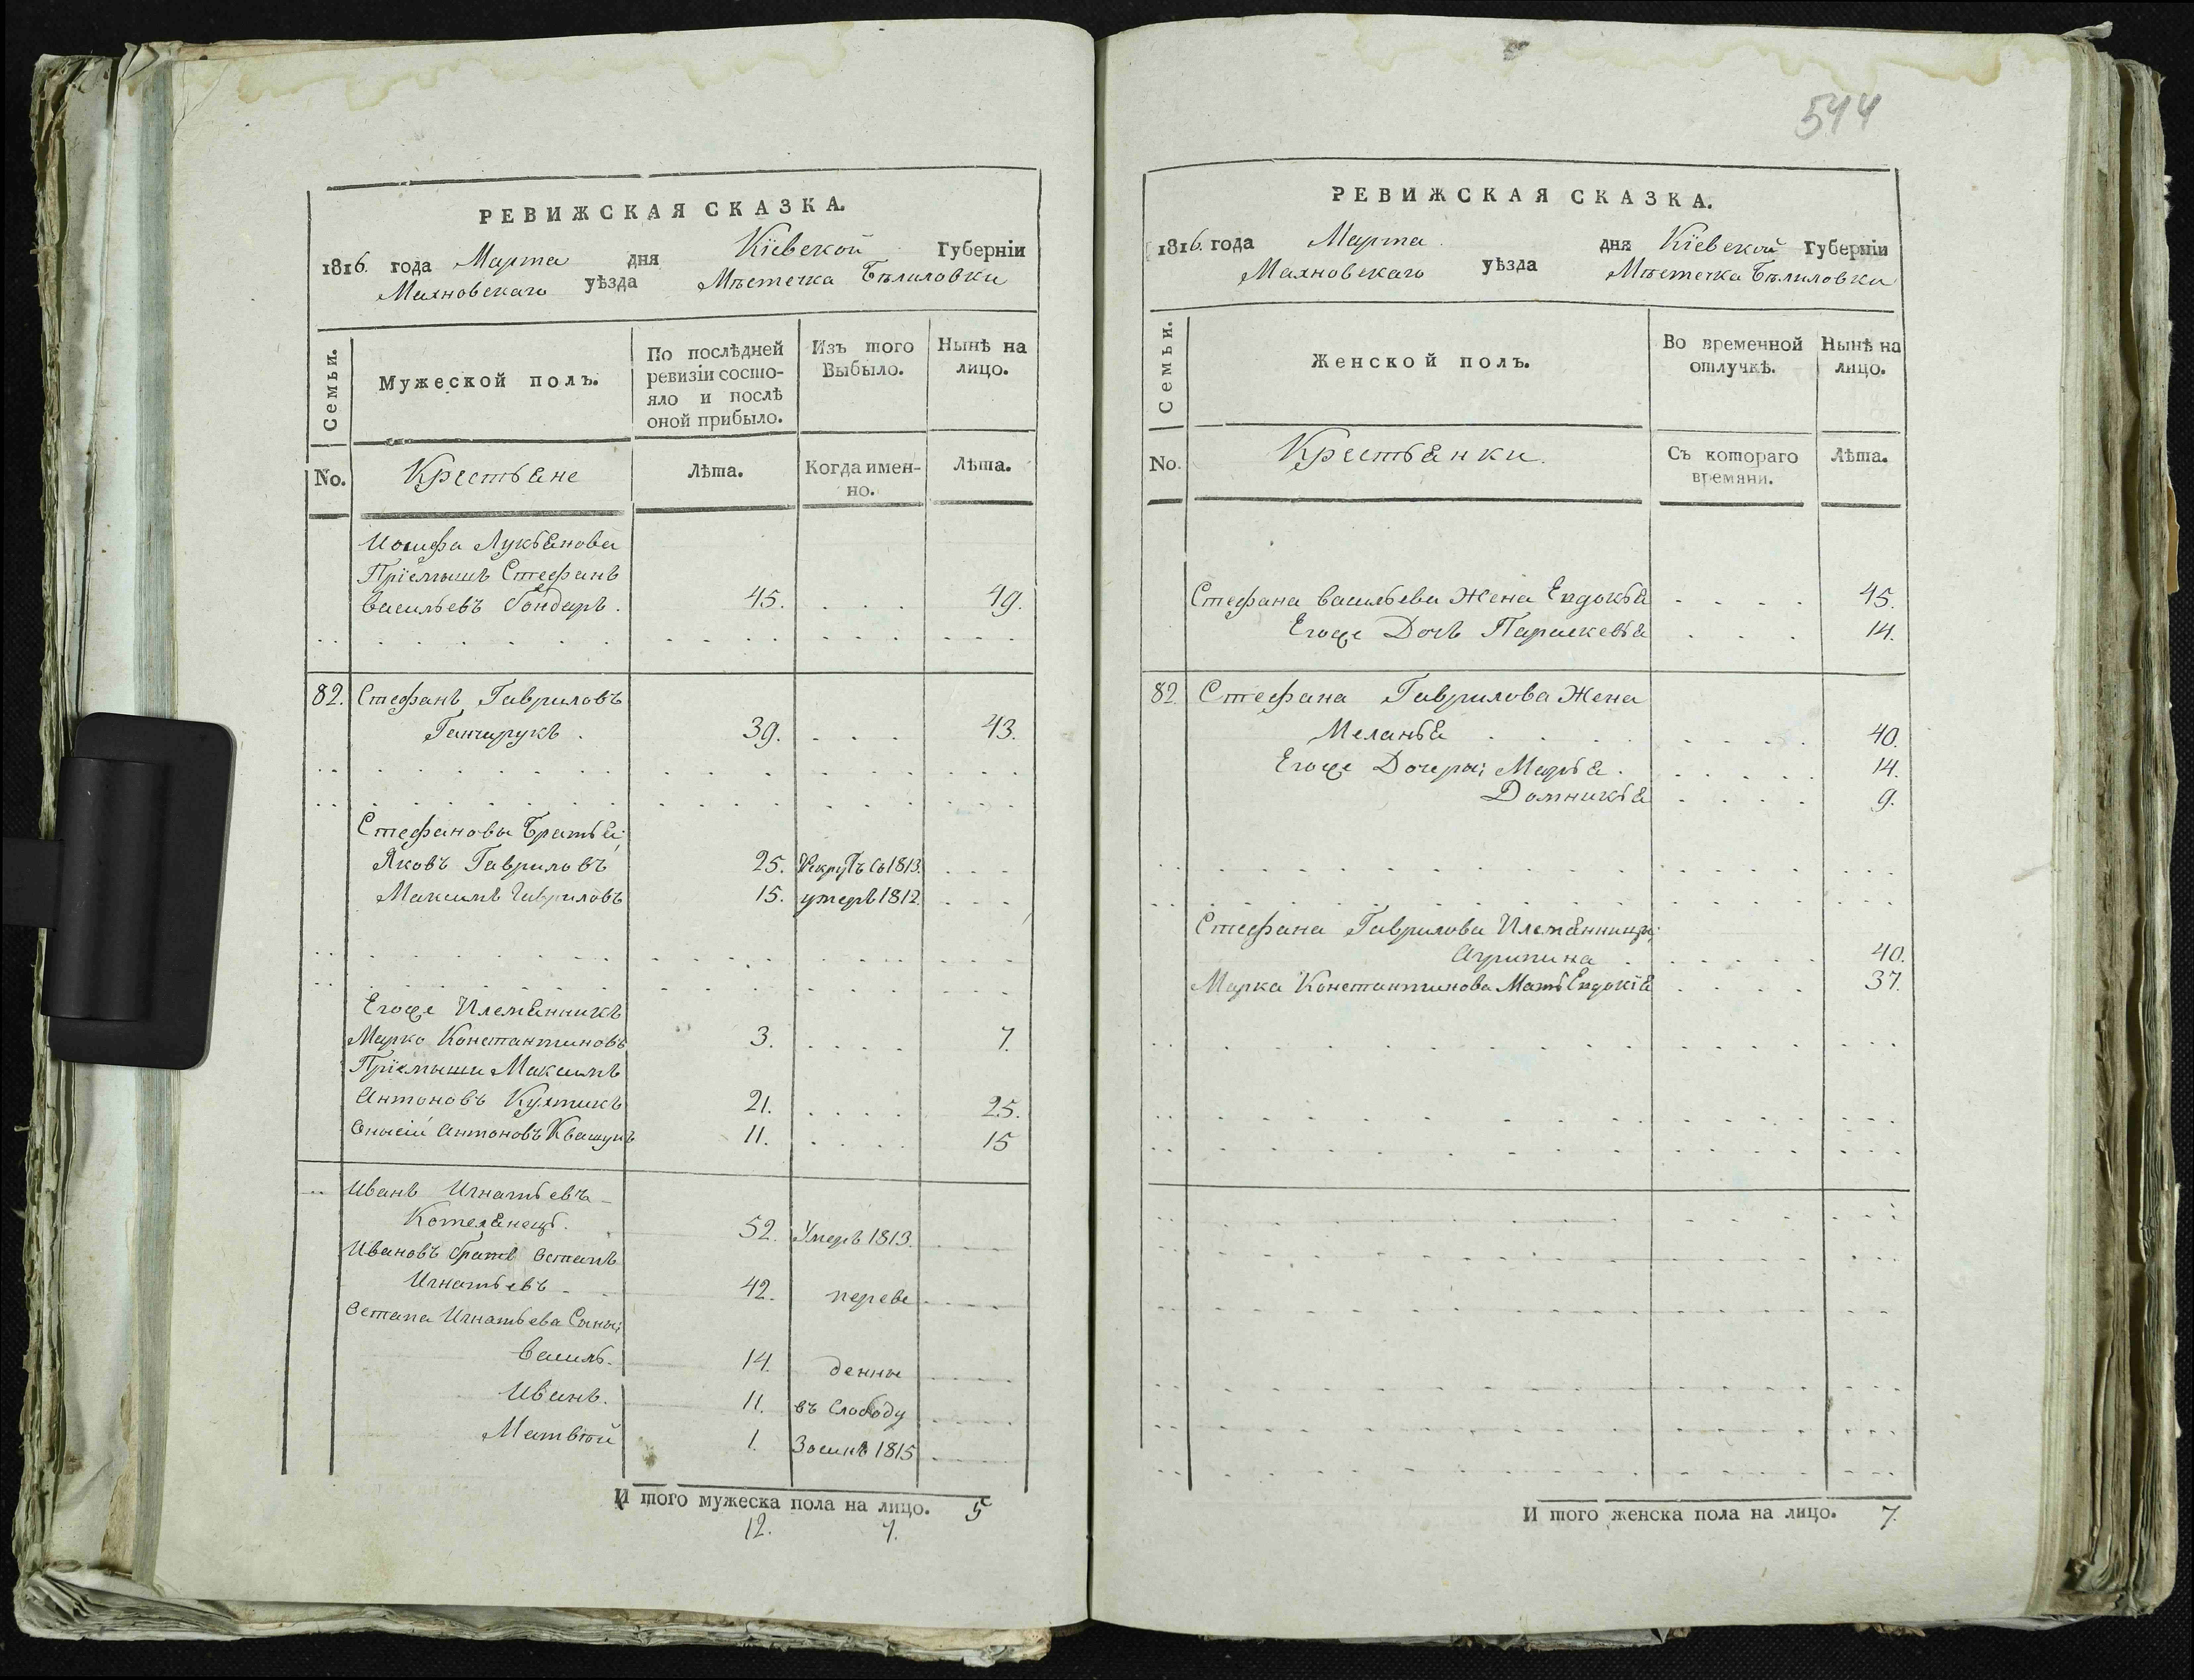 РЕВИЖСКАЯ СКАЗКА.
1816. года Марта дня Кіевской Губерніи
Махновскаго уѣзда Мѣстечка Бѣлиловки
Семьи.
Мужеской полъ.
По послѣдней ревизіи состо-
яло и послѣ
оной прибыло.
Изъ того
Выбыло.
Нынѣ на
лицо.
No.
Крестьяне
Лѣта.
Когда имен-
но.
Лѣта.
Иосифа Лукьянова
Пріемышъ Стефанъ
Васильевъ Бондарь. 45. 49.
82. Стефанъ Гавриловъ
Ганчарукъ. 39. 43.
Стефановы Братья;
Яковъ Гавриловъ 25. Рекрутъ съ 1813.
Максимъ Гавриловъ 15. умеръ 1812.
Егоже Племянникъ
Марко Константиновъ 3. 7.
Пріемыши Максимъ
Антоновъ 21. 25.
Антоновъ Квашукъ 11. 15
Иванъ Игнатьевъ
52. Умеръ 1813.
Ивановъ братъ Остапъ
Игнатьевъ 42. переве
Остапа Игнатьева Сыны;
Василь. 14. денны
Иванъ. 11. въ Слободу
Матвѣй 1. 1815
И того мужеска пола на лицо. 5
12. 7.
544
РЕВИЖСКАЯ СКАЗКА.
1816. года Марта дня Кіевской Губерніи
Махновскаго уѣзда Мѣстечка Бѣлиловки
Семьи.
Женской полъ.
Во временной
отлучкѣ.
Нынѣ на
лицо.
No.
Крестьянки.
Съ котораго
времяни.
Лѣта.
Стефана Васильева Жена Евдокья 45.
Егоже Дочь Параскевья 14.
82. Стефана Гаврилова Жена
Меланья 40.
Егоже Дочери; Марья. 14.
Домникья 9.
Стефана Гаврилова Племянницы;
Агрипина 40.
Марка Константинова Мать Евдокія 37.
И того женска пола на лицо. 7.